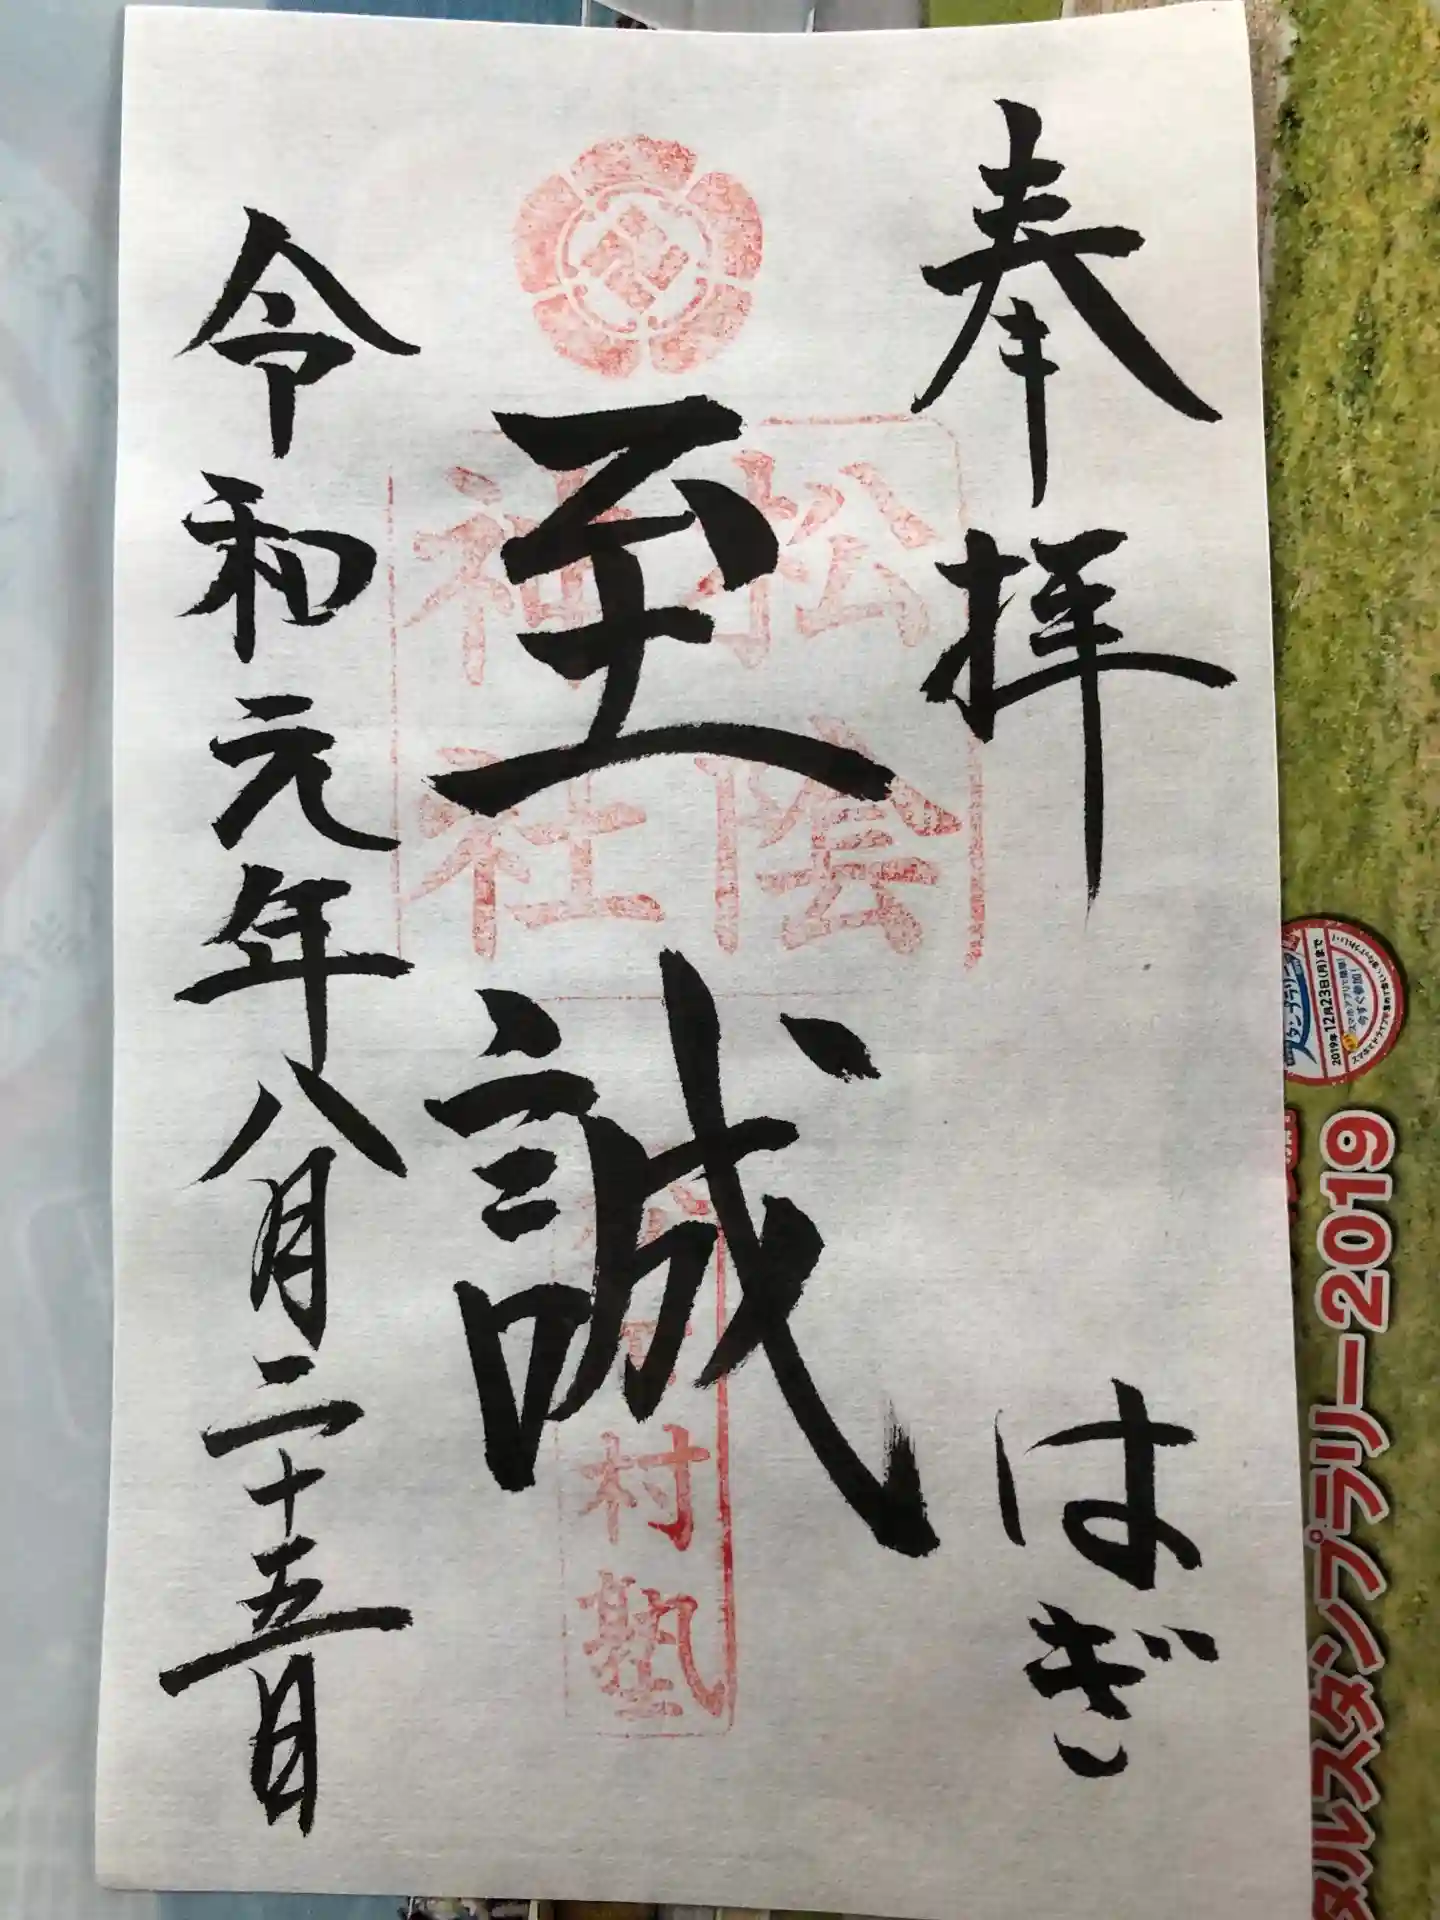 奉拝 はぎ
至誠
令和元年八月二十五日
松陰
神社
村塾
2019年12月23日(月)まで
今すぐ参加!
タルスタンプラリー2019